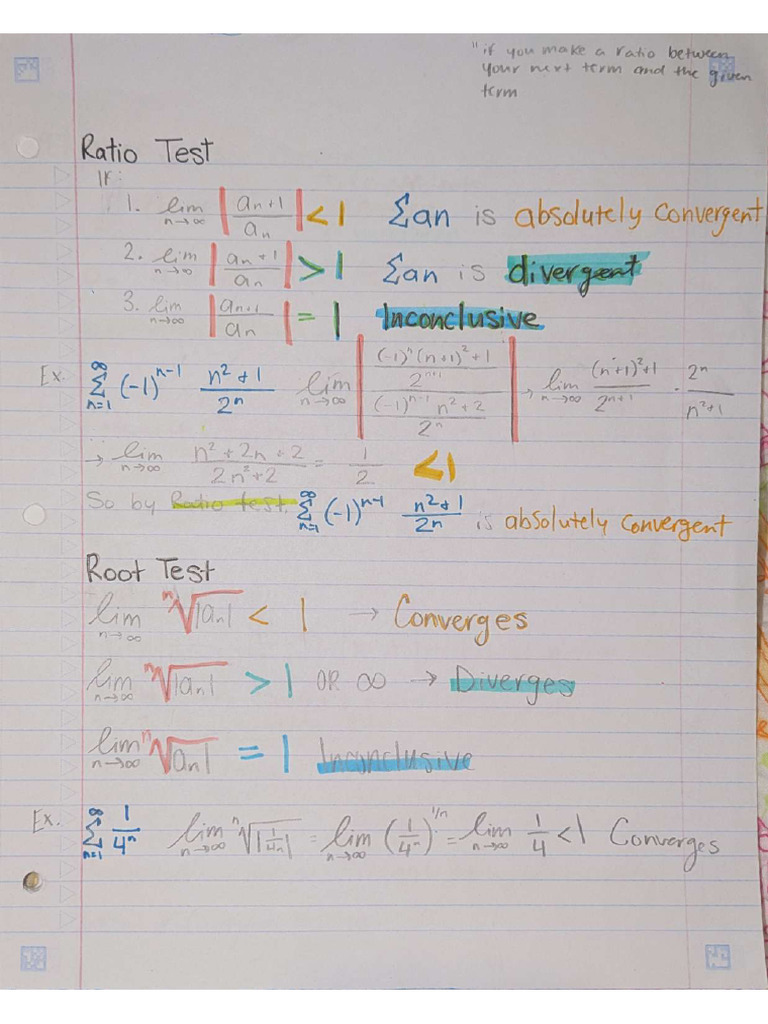 "if you make a ratio between
your next term and the given
term
Ratio Test
If:
1. lim n→∞ |an+1/an| < 1 Σan is absolutely convergent
2. lim n→∞ |an+1/an| > 1 Σan is divergent
3. lim n→∞ |an+1/an| = 1 Inconclusive
Ex. ∞Σn=1 (-1)^n-1 n²+1/2ⁿ lim n→∞ |((-1)ⁿ(n+1)²+1/2ⁿ⁺¹)/((-1)ⁿ⁻¹ n²+2/2ⁿ)| → lim n→∞ (n+1)²+1/2ⁿ⁺¹ · 2ⁿ/n²+1
→ lim n→∞ n²+2n+2/2n²+2 = 1/2 <1
So by Ratio test. ∞Σn=1 (-1)ⁿ⁻¹ n²+1/2n is absolutely convergent
Root Test
lim n→∞ ⁿ√|an| < 1 → Converges
lim n→∞ ⁿ√|an| > 1 OR ∞ → Diverges
lim n→∞ ⁿ√|an| = 1 Inconclusive
Ex. ∞Σn=1 1/4ⁿ lim n→∞ ⁿ√|1/4ⁿ| = lim n→∞ (1/4ⁿ)^1/n = lim n→∞ 1/4 <1 Converges